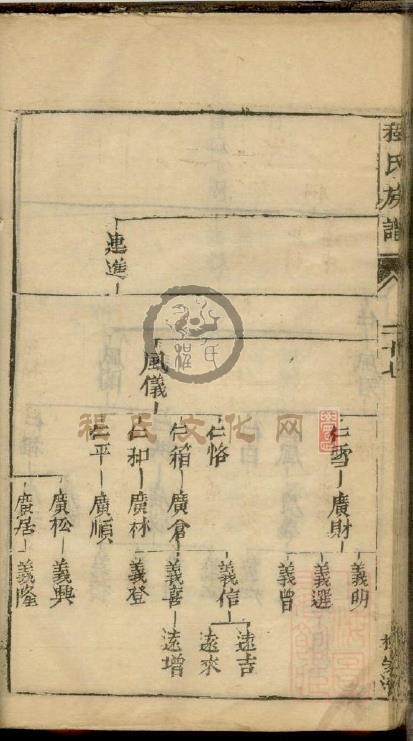 程氏族譜
仁雪 廣財
義明
義選
義曾
仁恪
義信
遠吉
遠來
風儀
仁箱 廣倉 義喜 遠增
仁和 廣林 義登
仁平 廣順
連進
廣松 義興
廣居 義隆
程氏文化网